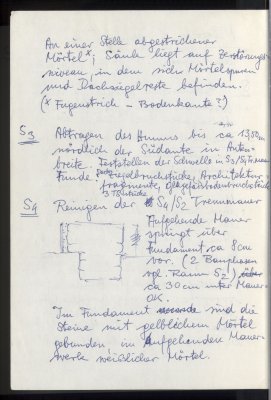 An einer Stelle abgestrichener
Mörtel*; Säule liegt auf Zerstörungs-
niveau, in dem sich Mörtelspuren
und Dachziegelreste befinden.
(* Fugenstrich – Bodenkante?)
S3 Abtragen des Humus bis ca 13,50m
nördlich der Südante in Anten-
breite. Feststellen der Schwelle in S3/S4
Funde: bruchstücke, Architektur-
fragmente, bruchstücke
S4 Reinigen der S4/S2 Trennmauer
Aufgehende Mauer
springt über
Fundament ca 8cm
vor. (2 Bauphasen
vgl. Raum S2!) über
ca 30cm unter Mauer-
OK.
Im Fundament sind die
Steine mit gelblichem Mörtel
gebunden im Aufgehenden Mauer-
werk weisslicher Mörtel.